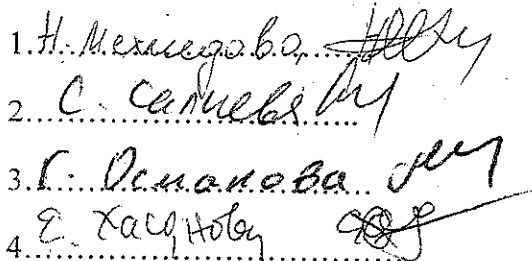 1. Н. Мехмедова
2. С. Салиева
3. Г. Османова
4. Е. Хасанову